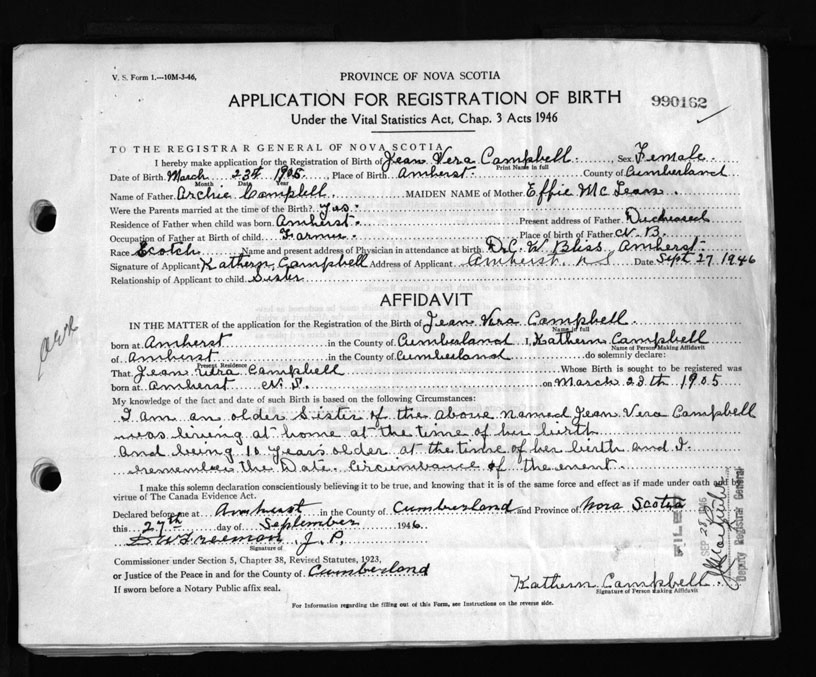 V. S. Form 1.—10M-3-46,
PROVINCE OF NOVA SCOTIA
APPLICATION FOR REGISTRATION OF BIRTH
990162
Under the Vital Statistics Act, Chap. 3 Acts 1946
TO THE REGISTRAR GENERAL OF NOVA SCOTIA
I hereby make application for the Registration of Birth of Jean Vera Campbell Sex Female
Print Name in full
Date of Birth March 23d 1905 Place of Birth Amherst County of Cumberland
Month Date Year
Name of Father Archie Campbell MAIDEN NAME of Mother Effie McLean
Were the Parents married at the time of the Birth? yes.
Residence of Father when child was born Amherst. Present address of Father Deceased
Occupation of Father at Birth of child Farmer. Place of birth of Father N.B.
Race Scotch Name and present address of Physician in attendance at birth D.C.W. Bliss, Amherst.
Signature of Applicant Kathern Campbell Address of Applicant Amherst, N S Date Sept 27 1946
Relationship of Applicant to child Sister
AFFIDAVIT
IN THE MATTER of the application for the Registration of the Birth of Jean Vera Campbell
Name in full
born at Amherst in the County of Cumberland I, Kathern Campbell
Name of Person Making Affidavit
of Amhurst in the County of Cumberland do solemnly declare:
Present Residence
That Jean Vera Campbell Whose Birth is sought to be registered was
born at Amherst N.S. on March 23th 1905
My knowledge of the fact and date of such Birth is based on the following Circumstances:
I am an older Sister of the above named Jean Vera Campbell
was living at home at the time of her birth
and being 10 years older at the time of her birth and I
remember the Date circumstance of the event.
I make this solemn declaration conscientiously believing it to be true, and knowing that it is of the same force and effect as if made under oath and by
virtue of The Canada Evidence Act.
Declared before me at Amhurst in the County of Cumberland and Province of Nova Scotia
this 27th day of September 1946
Freeman, J. P.
Signature of
Commissioner under Section 5, Chapter 38, Revised Statutes, 1923,
or Justice of the Peace in and for the County of Cumberland
If sworn before a Notary Public affix seal.
Kathern Campbell
Signature of Person Making Affidavit
For Information regarding the filling out of this Form, see Instructions on the reverse side.
FILED
SEP 28 1946
Deputy Registrar General